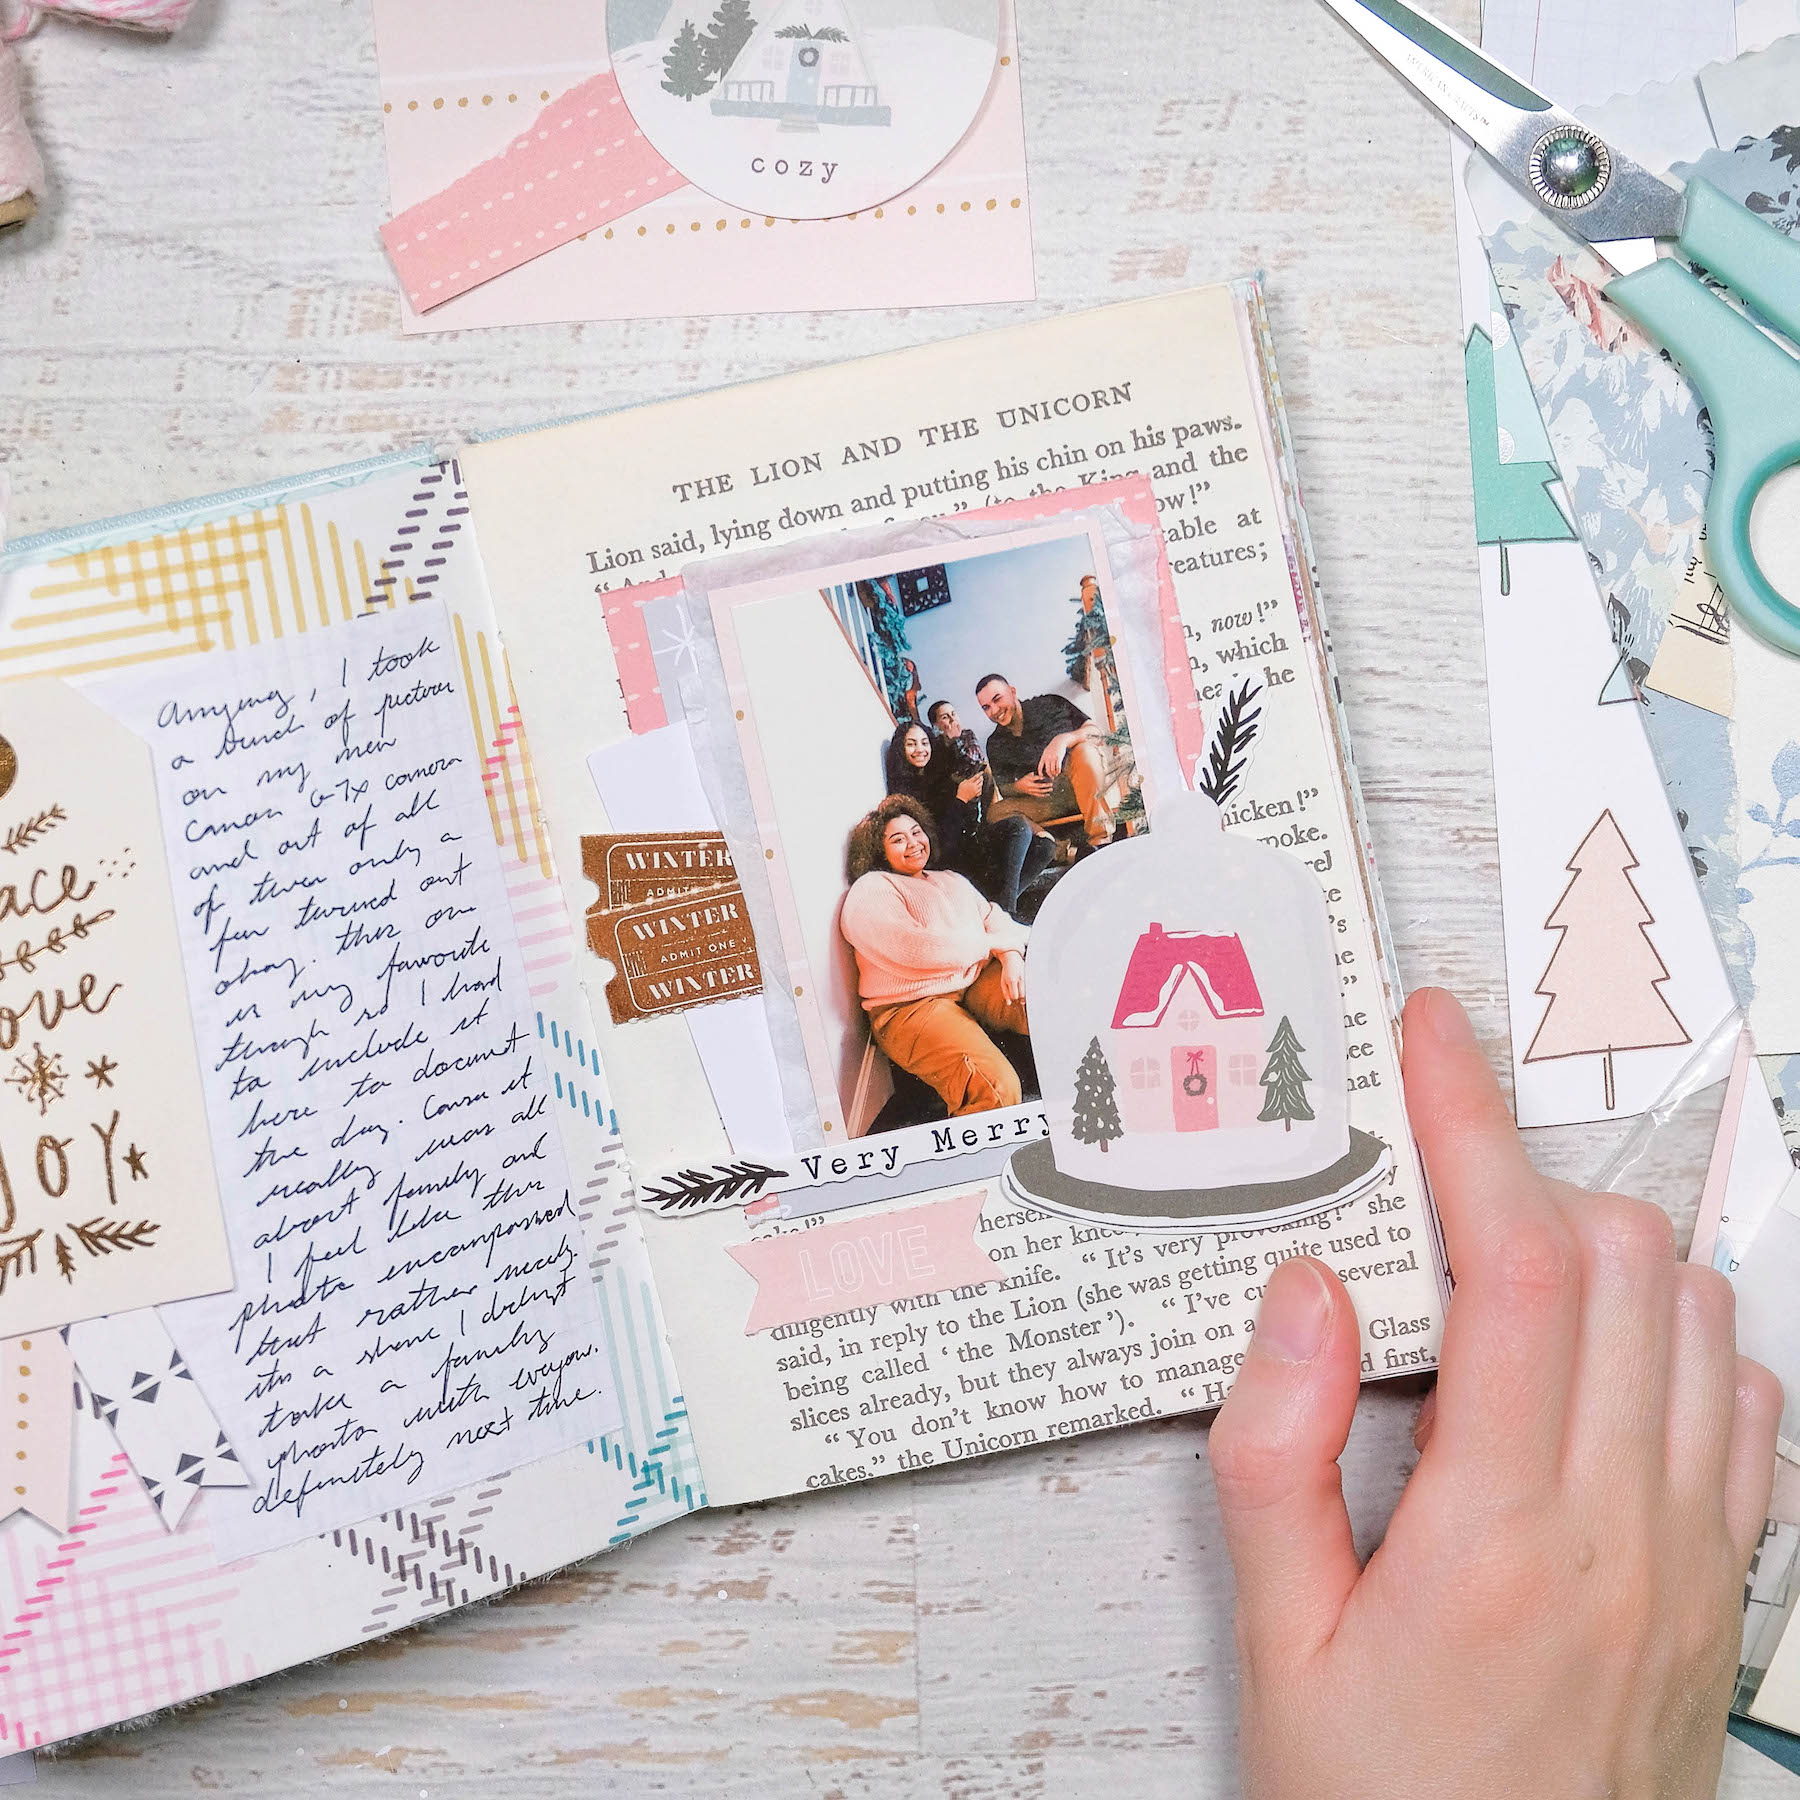 cozy
WE R MEMORY KEEPERS
THE LION AND THE UNICORN
Lion said, lying down and putting his chin on his paws.
(to the King and the
ow!”
table at
eatures;
now!”
n, which
he
hicken!”
spoke.
rel
te
’s
he
.”
he
ee
hat
y
herse
she
on her knee “It’s very provoking!”
diligently with the knife.
said, in reply to the Lion (she was getting quite used to
being called ‘the Monster’). “I’ve cu several
slices already, but they always join on a
“You don’t know how to manage Glass
cakes,” the Unicorn remarked. “Ha d first,
WINTER
ADMIT
WINTER
ADMIT ONE
WINTER
Very Merry
LOVE
Anyway, I took
a bunch of pictures
on my new
Canon G7x camera
and out of all
of them only a
few turned out
okay. This one
is my favorite
though so I had
to include it
here to document
the day. Cause it
really was all
about family and
I feel like this
photo encompassed
that rather nicely.
its a shame I didn't
take a family
photo with everyone.
definitely next time.
ace
ove
JOY